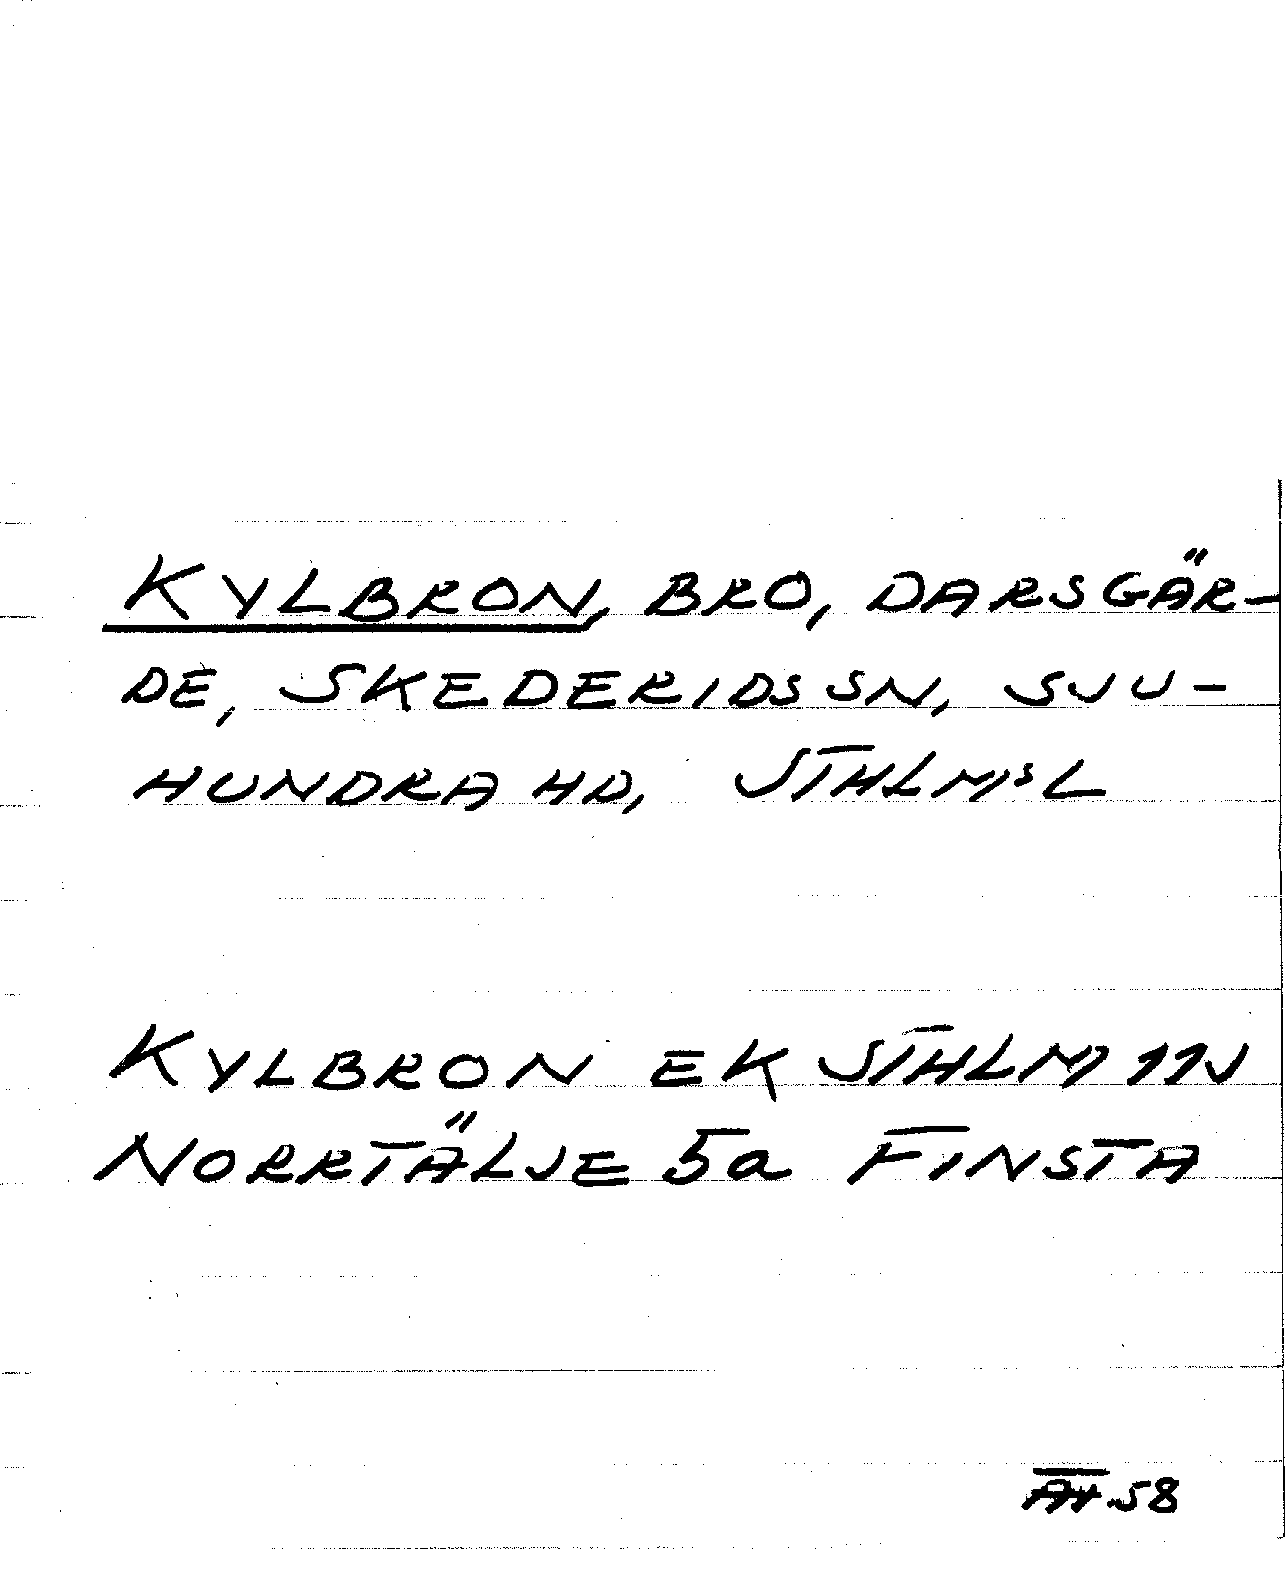 KYLBRON, BRO, DARSGÄR-
DE, SKEDERIDS SN, SJU-
HUNDRA HD, STHLMSL
KYLBRON EK STHLM 11J
NORRTÄLJE 5a FINSTA
58